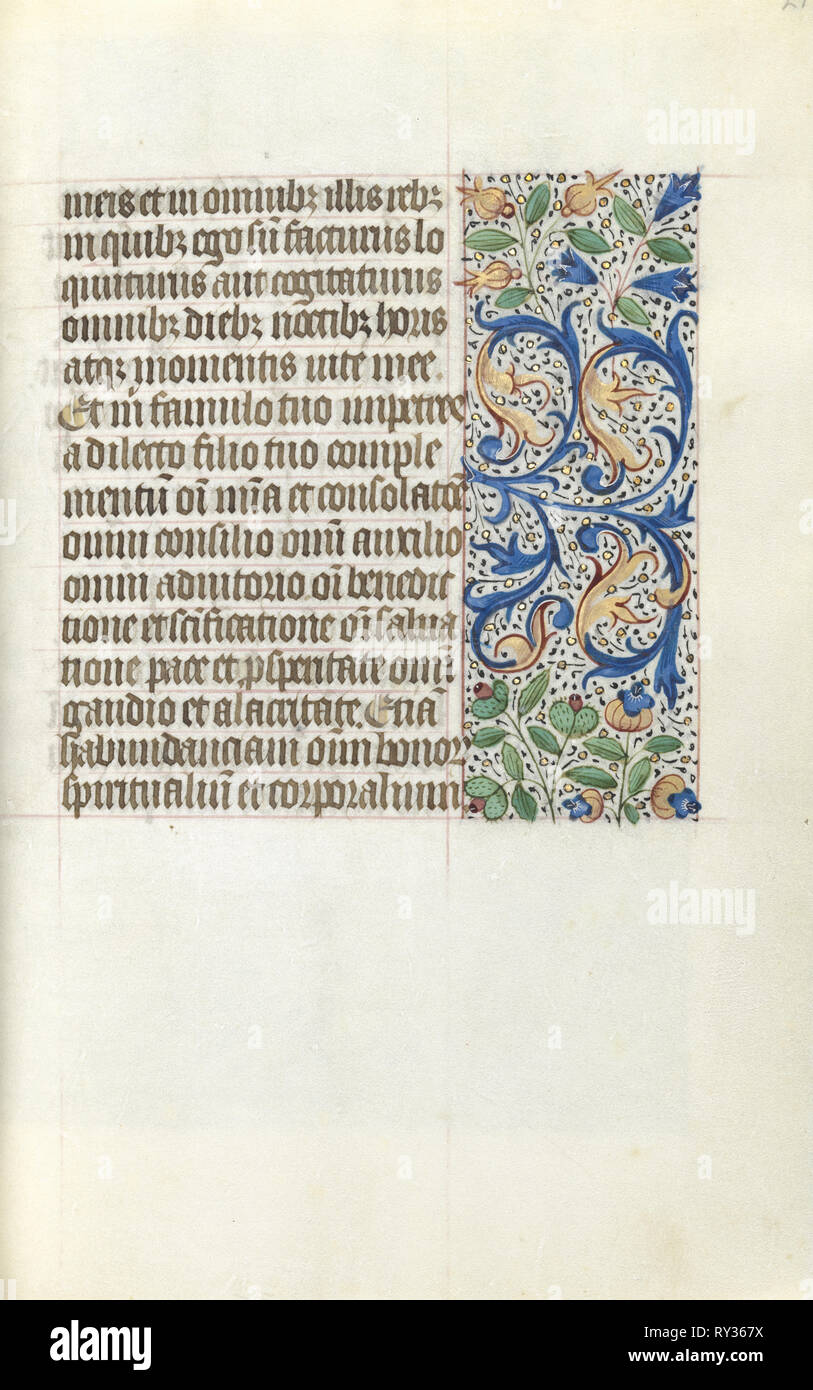 meis et in omnibꝫ illis rebꝫ
in quibꝫ ego sū facturus lo
quiturus aut cogitaturus
omnibꝫ diebꝫ noctibꝫ horis
atqꝫ momentis vite mee.
Et m̄ famulo tuo impetres
a dilecto filio tuo comple
mentū oī mīa et consolatōe
omni consilio omī auxilio
omni adiutorio oī benedic
tione et scīficatione oī salua
tione pace et ꝓsperitate omī
gaudio et alacritate. Etiā
habundanciam oīm bonorꝝ
spiritualiū et corporalium.
alamy
alamy
alamy
Image ID: RY367X
www.alamy.com